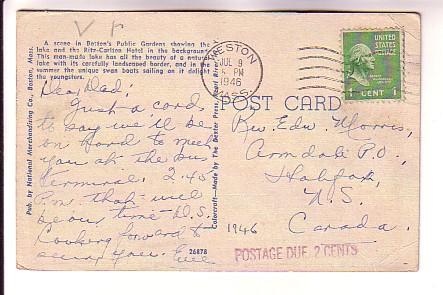 A scene in Boston's Public Gardens showing the
lake and the Ritz-Carlton Hotel in the background.
This man-made lake has all the beauty of a natural
lake with its carefully landscaped border, and in the
summer the unique swan boats sailing on it delight
the youngsters.
Dear Dad;
Just a card
to say we'll be
on hand to meet
you at the bus
terminal. 2.45
P.m. that will
be our time D.S.
Looking forward to
seeing you.
26878
Pub. by National Merchandising Co., Boston, Mass.
Colorcraft—Made by The Bester Press, Pearl River,
BOSTON
JUL 9
PM
1946
MASS.
UNITED STATES
POSTAGE
1 CENT 1
POST CARD
Rev. Edw Morris,
Armdale P.O.,
Halifax
N.S.
Canada.
1946
POSTAGE DUE 2 CENTS